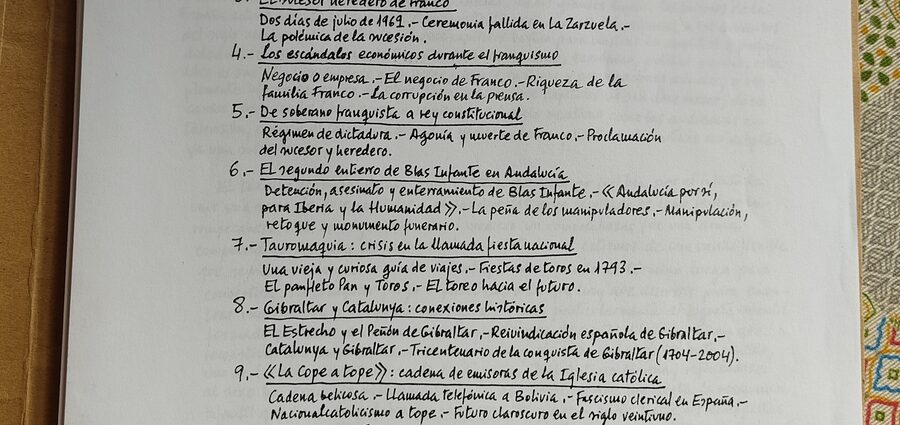 3.- El sucesor heredero de Franco
Dos días de julio de 1969.- Ceremonia fallida en La Zarzuela.-
La polémica de la sucesión.
4.- Los escándalos económicos durante el franquismo
Negocio o empresa.- El negocio de Franco.- Riqueza de la
familia Franco.- La corrupción en la prensa.
5.- De soberano franquista a rey constitucional
Régimen de dictadura.- Agonía y muerte de Franco.- Proclamación
del sucesor y heredero.
6.- El segundo entierro de Blas Infante en Andalucía
Detención, asesinato y enterramiento de Blas Infante.- «Andalucía por sí,
para Iberia y la Humanidad».- La peña de los manipuladores.- Manipulación,
retoque y monumento funerario.
7.- Tauromaquia: crisis en la llamada fiesta nacional
Una vieja y curiosa guía de viajes.- Fiestas de toros en 1793.-
El panfleto Pan y Toros.- El toreo hacia el futuro.
8.- Gibraltar y Catalunya: conexiones históricas
El Estrecho y el Peñón de Gibraltar.- Reivindicación española de Gibraltar.-
Catalunya y Gibraltar.- Tricentenario de la conquista de Gibraltar (1704-2004).
9.- «La Cope a tope»: cadena de emisoras de la Iglesia católica
Cadena belicosa.- Llamada telefónica a Bolivia.- Fascismo clerical en España.-
Nacionalcatolicismo a tope.- Futuro claroscuro en el siglo veintiuno.